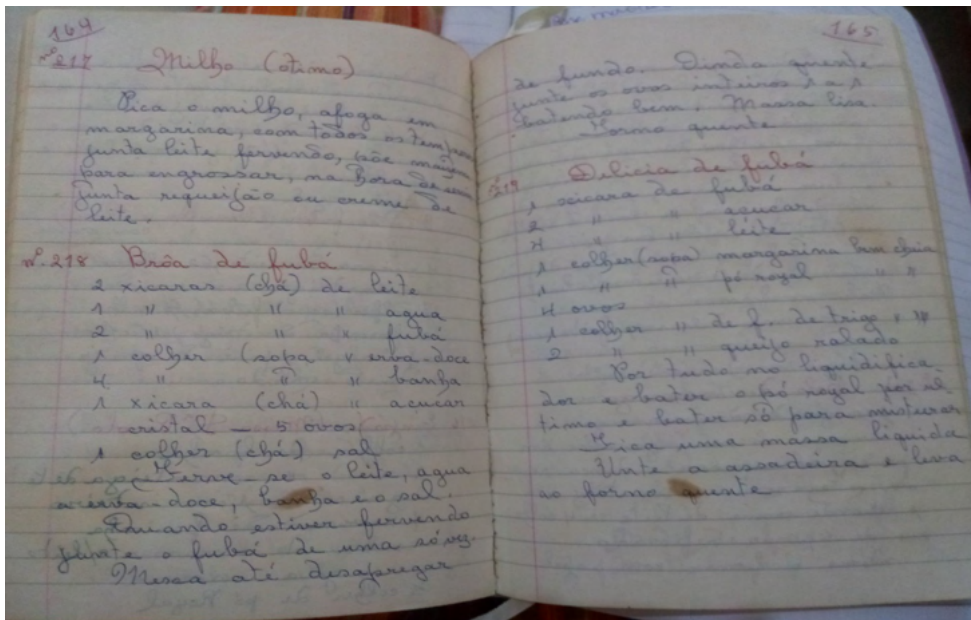 164
nº 217 Milho (otimo)
Pica o milho, afoga em
margarina, com todos os temperos
junta leite fervendo, põe maizena
para engrossar, na hora de servir
junta requeijão ou creme de
leite.
nº 218 Brôa de fubá
2 xicaras (chá) de leite
1 " " " agua
2 " " " fubá
1 colher (sopa " erva-doce
4 " " " banha
1 xicara (chá) " acucar
cristal - 5 ovos
1 colher (chá) sal
Ferve-se o leite, agua
a erva-doce, banha e o sal.
Quando estiver fervendo
junte o fubá de uma só vez.
Mexa até desapregar
165
do fundo. Ainda quente
junte os ovos inteiros 1 a 1
batendo bem. Massa lisa.
Forno quente
219 Delicia de fubá
1 xicara de fubá
2 " " acucar
4 " " leite
1 colher (sopa) margarina bem cheia
1 " " pó royal " "
4 ovos
1 colher " de f. de trigo " "
2 " " queijo ralado
Por tudo no liquidifica
dor e bater o pó royal por ul
timo e bater só para misturar
Fica uma massa liquida
Unte a assadeira e leva
ao forno quente